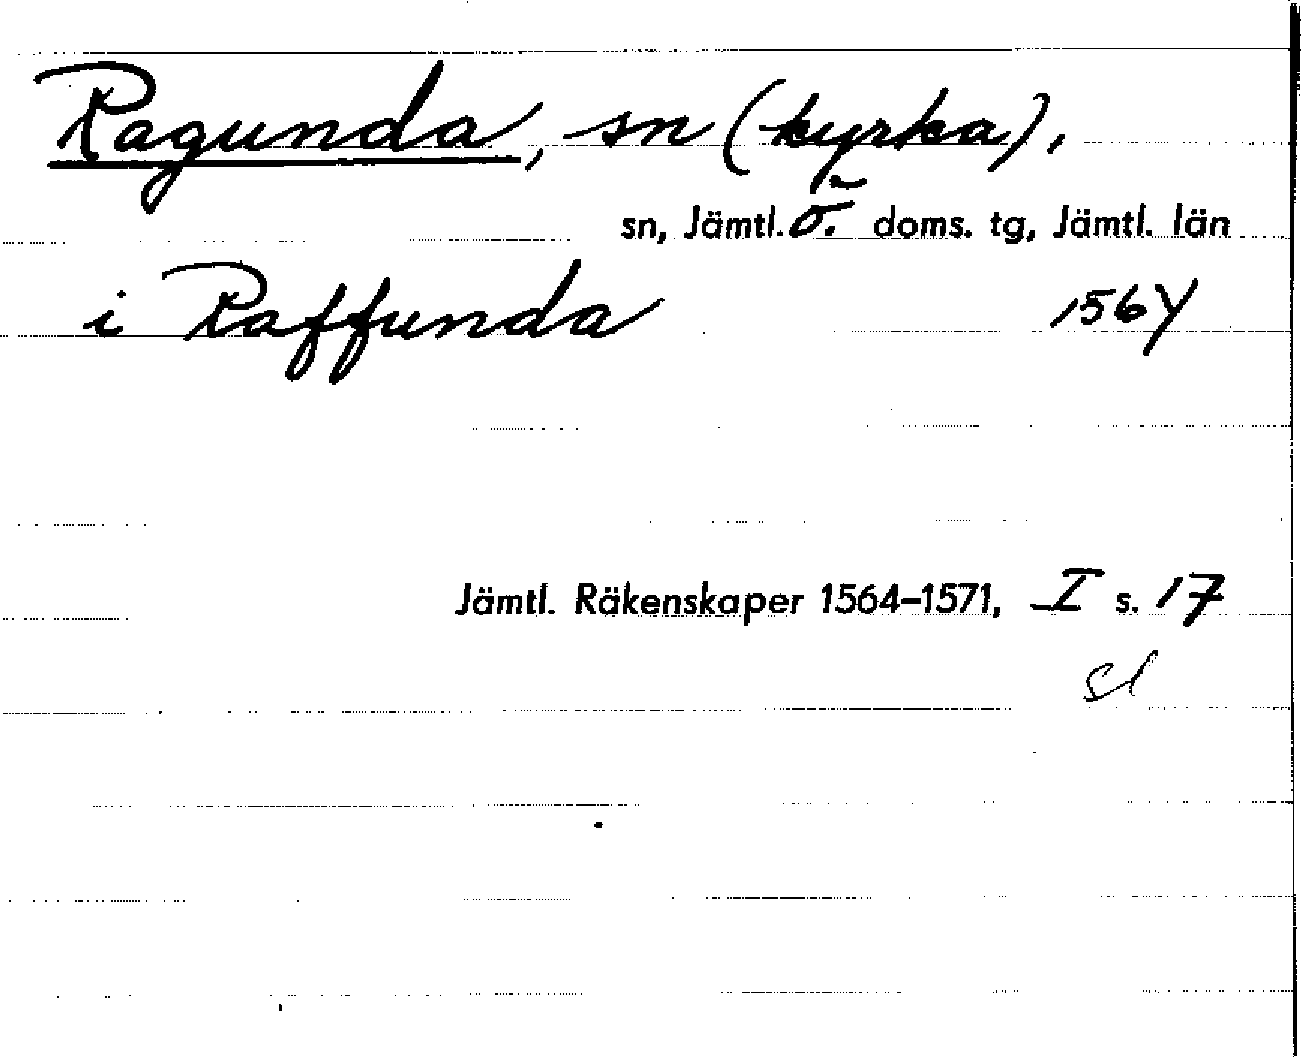 Ragunda, sn (kyrka),
sn, Jämtl. ö. doms. tg, Jämtl. län
i Raffunda 1564
Jämtl. Räkenskaper 1564–1571, I s. 17
sl